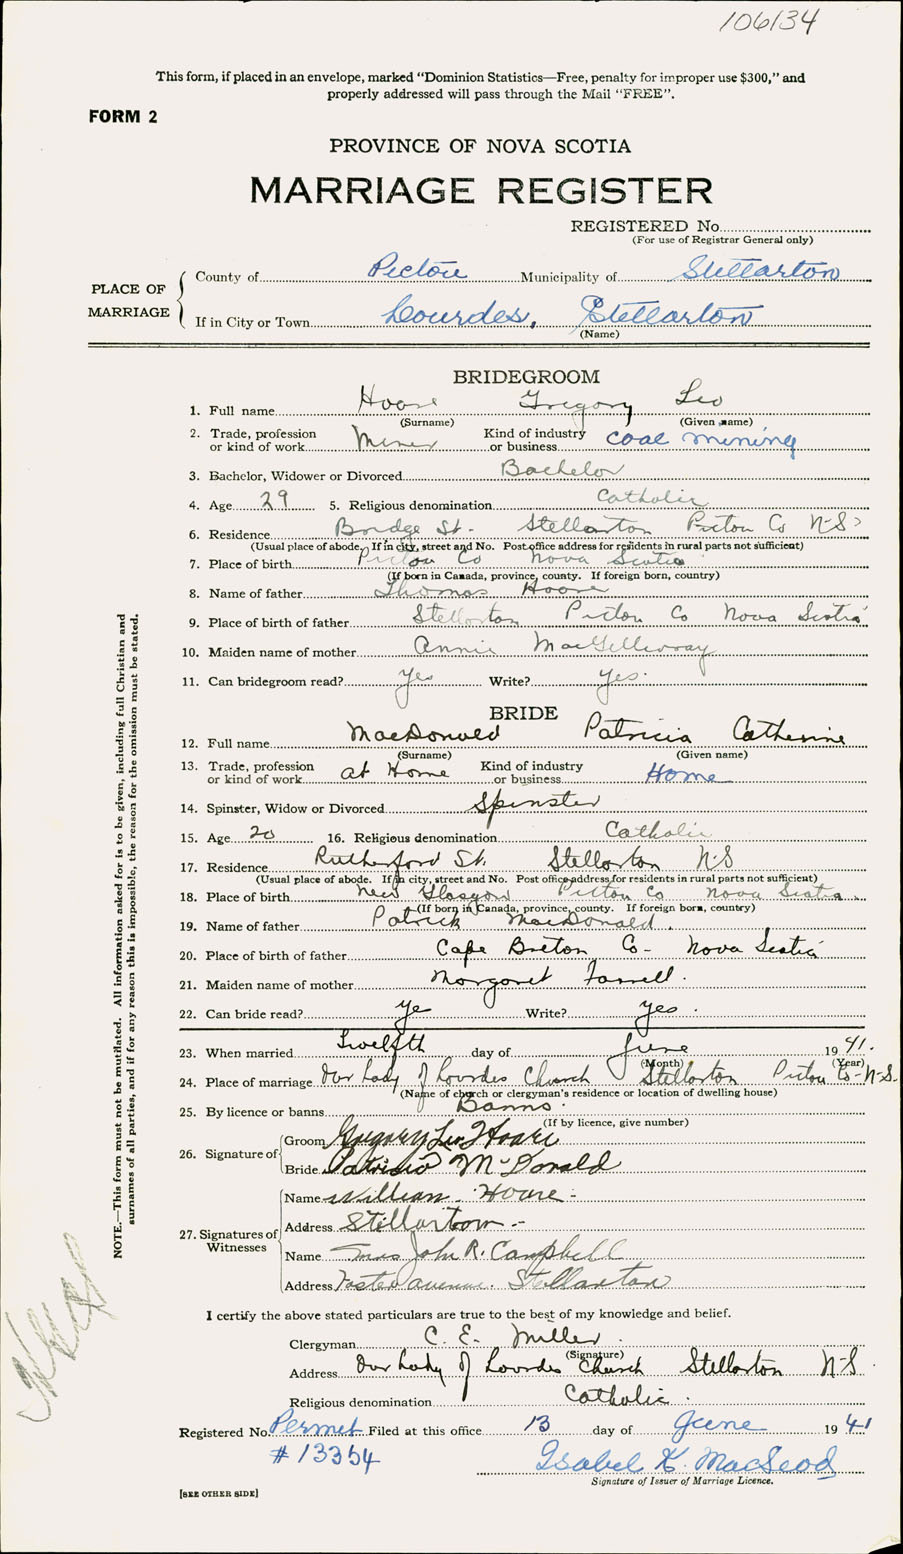 106134
This form, if placed in an envelope, marked "Dominion Statistics—Free, penalty for improper use $300," and
properly addressed will pass through the Mail "FREE".
FORM 2
PROVINCE OF NOVA SCOTIA
MARRIAGE REGISTER
REGISTERED No.
(For use of Registrar General only)
PLACE OF MARRIAGE
County of Pictou Municipality of Stellarton
If in City or Town Lourdes, Stellarton
(Name)
BRIDEGROOM
1. Full name Hoare Gregory Leo
(Surname) (Given name)
2. Trade, profession or kind of work Miner Kind of industry or business coal mining
3. Bachelor, Widower or Divorced Bachelor
4. Age 29 5. Religious denomination Catholic
6. Residence Bridge St. Stellarton Pictou Co N-S
(Usual place of abode. If in city, street and No. Post office address for residents in rural parts not sufficient)
7. Place of birth Pictou Co Nova Scotia
(If born in Canada, province, county. If foreign born, country)
8. Name of father Thomas Hoare
9. Place of birth of father Stellarton Pictou Co Nova Scotia
10. Maiden name of mother Annie MacGillivray
11. Can bridegroom read? Yes Write? Yes.
BRIDE
12. Full name MacDonald Patricia Catherine
(Surname) (Given name)
13. Trade, profession or kind of work at Home Kind of industry or business Home
14. Spinster, Widow or Divorced Spinster
15. Age 20 16. Religious denomination Catholic
17. Residence Rutherford St. Stellarton NS
(Usual place of abode. If in city, street and No. Post office address for residents in rural parts not sufficient)
18. Place of birth New Glasgow Pictou Co Nova Scotia
(If born in Canada, province, county. If foreign born, country)
19. Name of father Patrick MacDonald.
20. Place of birth of father Cape Breton Co- Nova Scotia
21. Maiden name of mother Margaret Farrell.
22. Can bride read? Ye Write? Yes.
23. When married Twelfth day of June 1941.
(Month) (Year)
24. Place of marriage Our Lady of Lourdes Church Stellarton Pictou Co-N-S.
(Name of church or clergyman's residence or location of dwelling house)
25. By licence or banns Banns.
(If by licence, give number)
26. Signature of
Groom Gregory Leo Hoare
Bride Patricia McDonald
27. Signatures of Witnesses
Name William Hoare -
Address Stellarton -
Name Mrs John R. Campbell
Address Foster avenue. Stellarton
I certify the above stated particulars are true to the best of my knowledge and belief.
Clergyman C. E. Miller.
(Signature)
Address Our Lady of Lourdes Church Stellarton N-S.
Religious denomination Catholic.
Registered No. Permet Filed at this office 13 day of June 1941
#13354
Isabel K. MacLeod
Signature of Issuer of Marriage Licence.
[SEE OTHER SIDE]
NOTE.—This form must not be mutilated. All information asked for is to be given, including full Christian and
surnames of all parties, and if for any reason this is impossible, the reason for the omission must be stated.